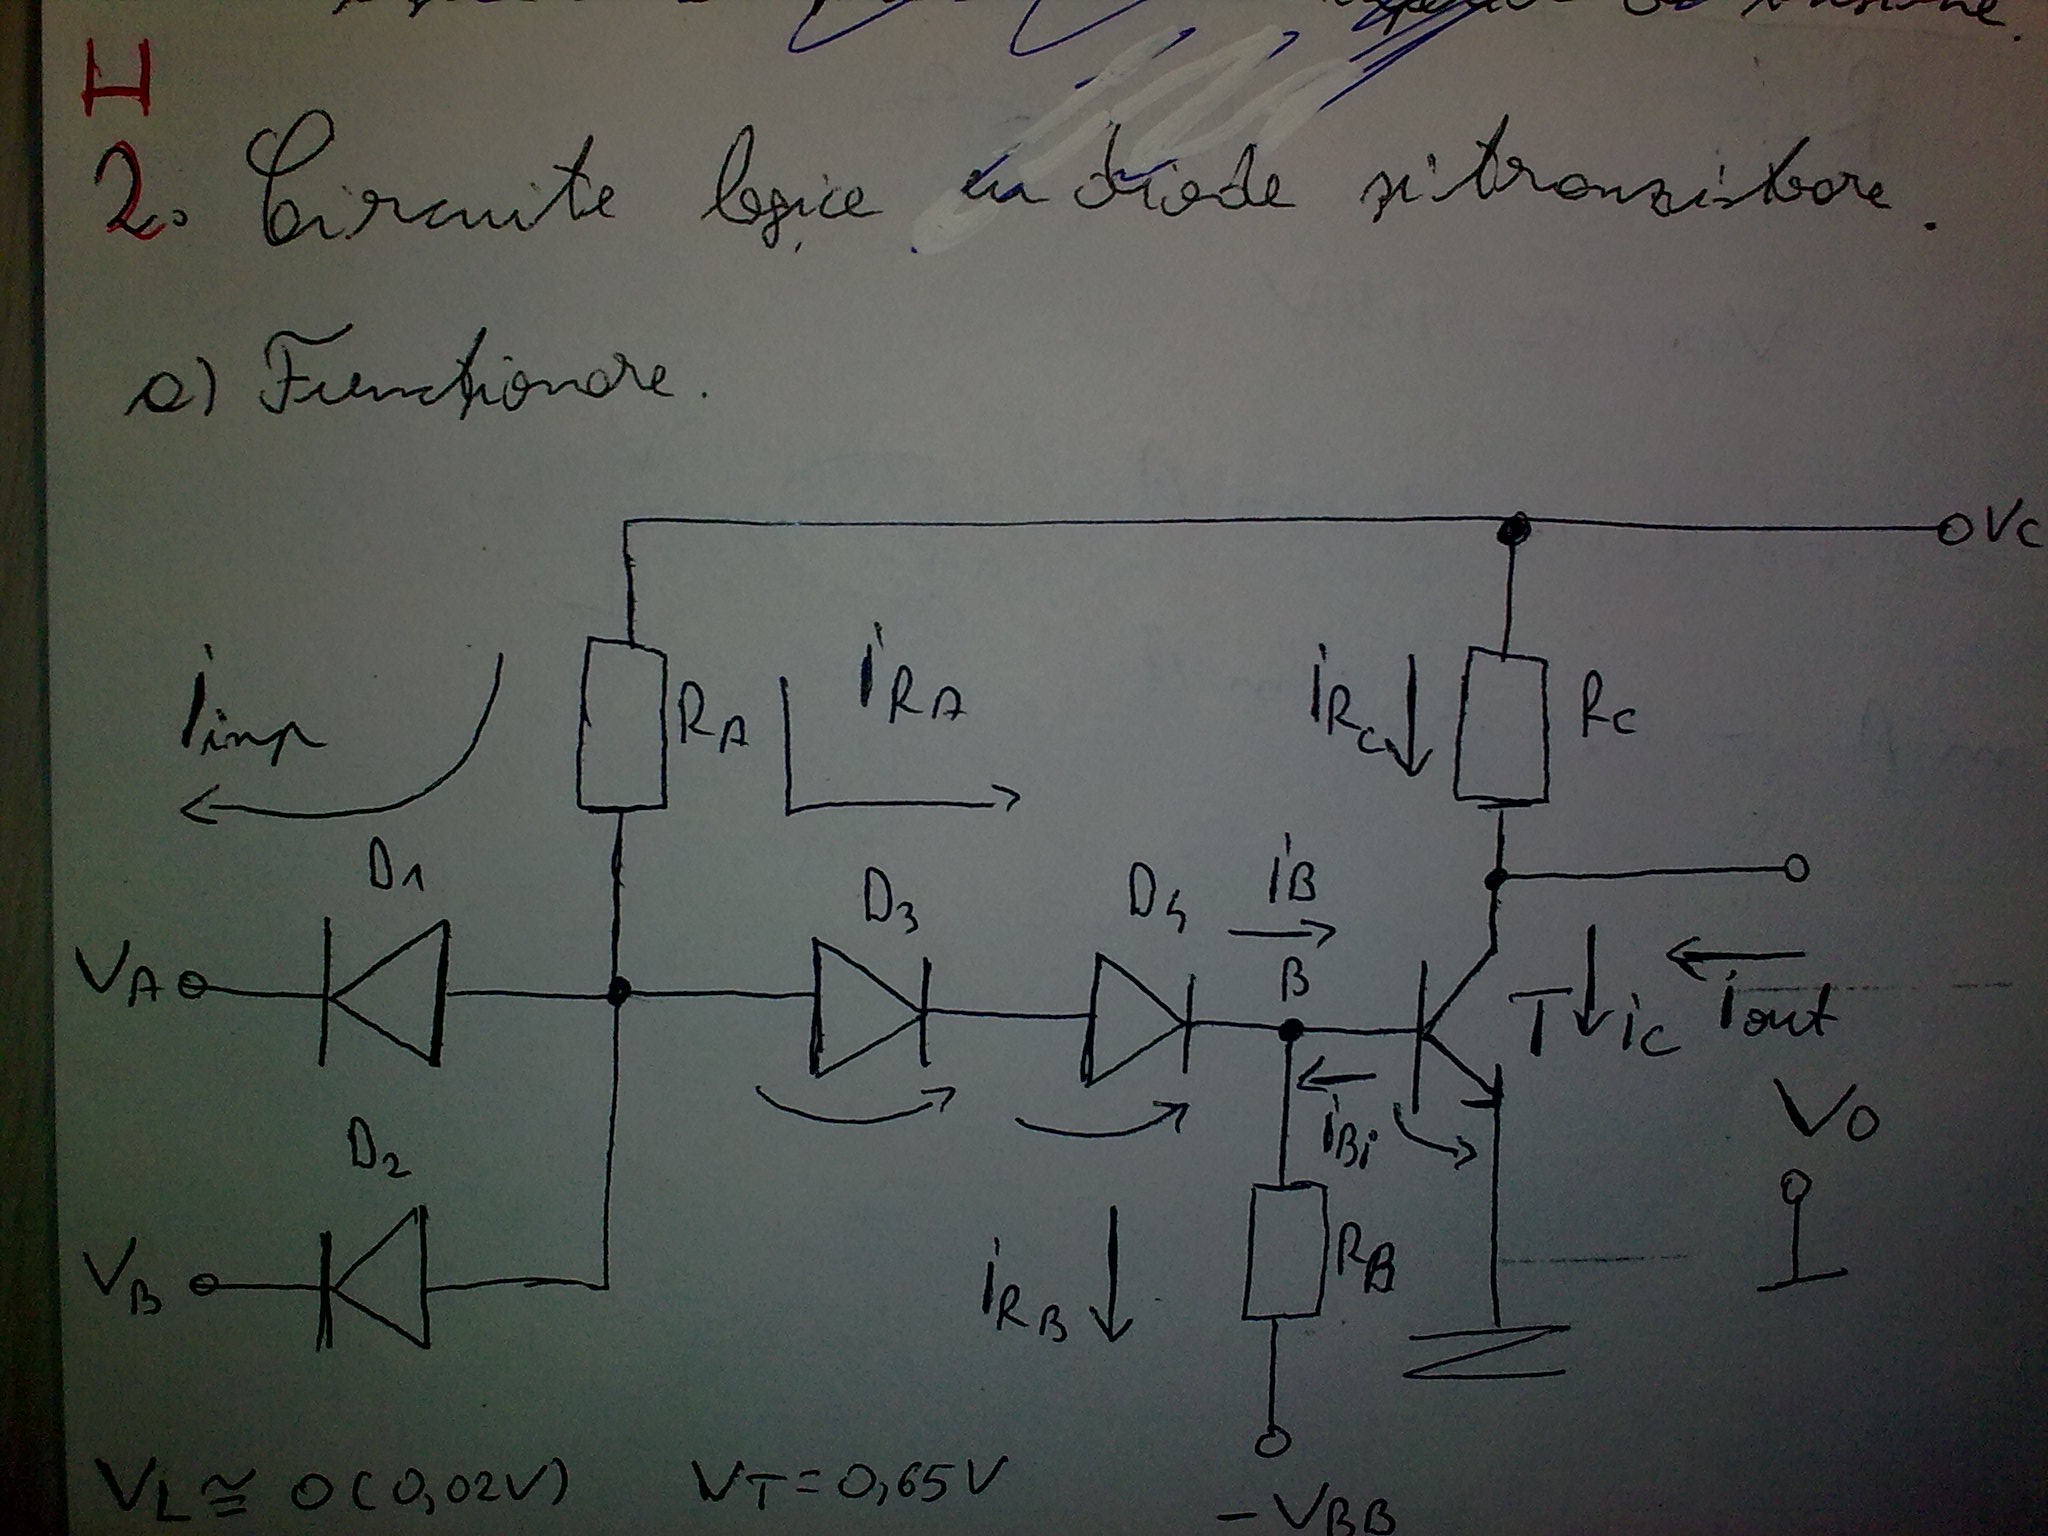 H
2. Circuite logice cu diode și tranzistoare.
a) Funcționare.
VC
iimp
RA
iRA
iRC
RC
D1
D3
D4
iB
VA
B
T
iC
iout
iBi
VO
D2
VB
iRB
RB
VL ≅ 0 (0,02V) VT = 0,65V
-VBB